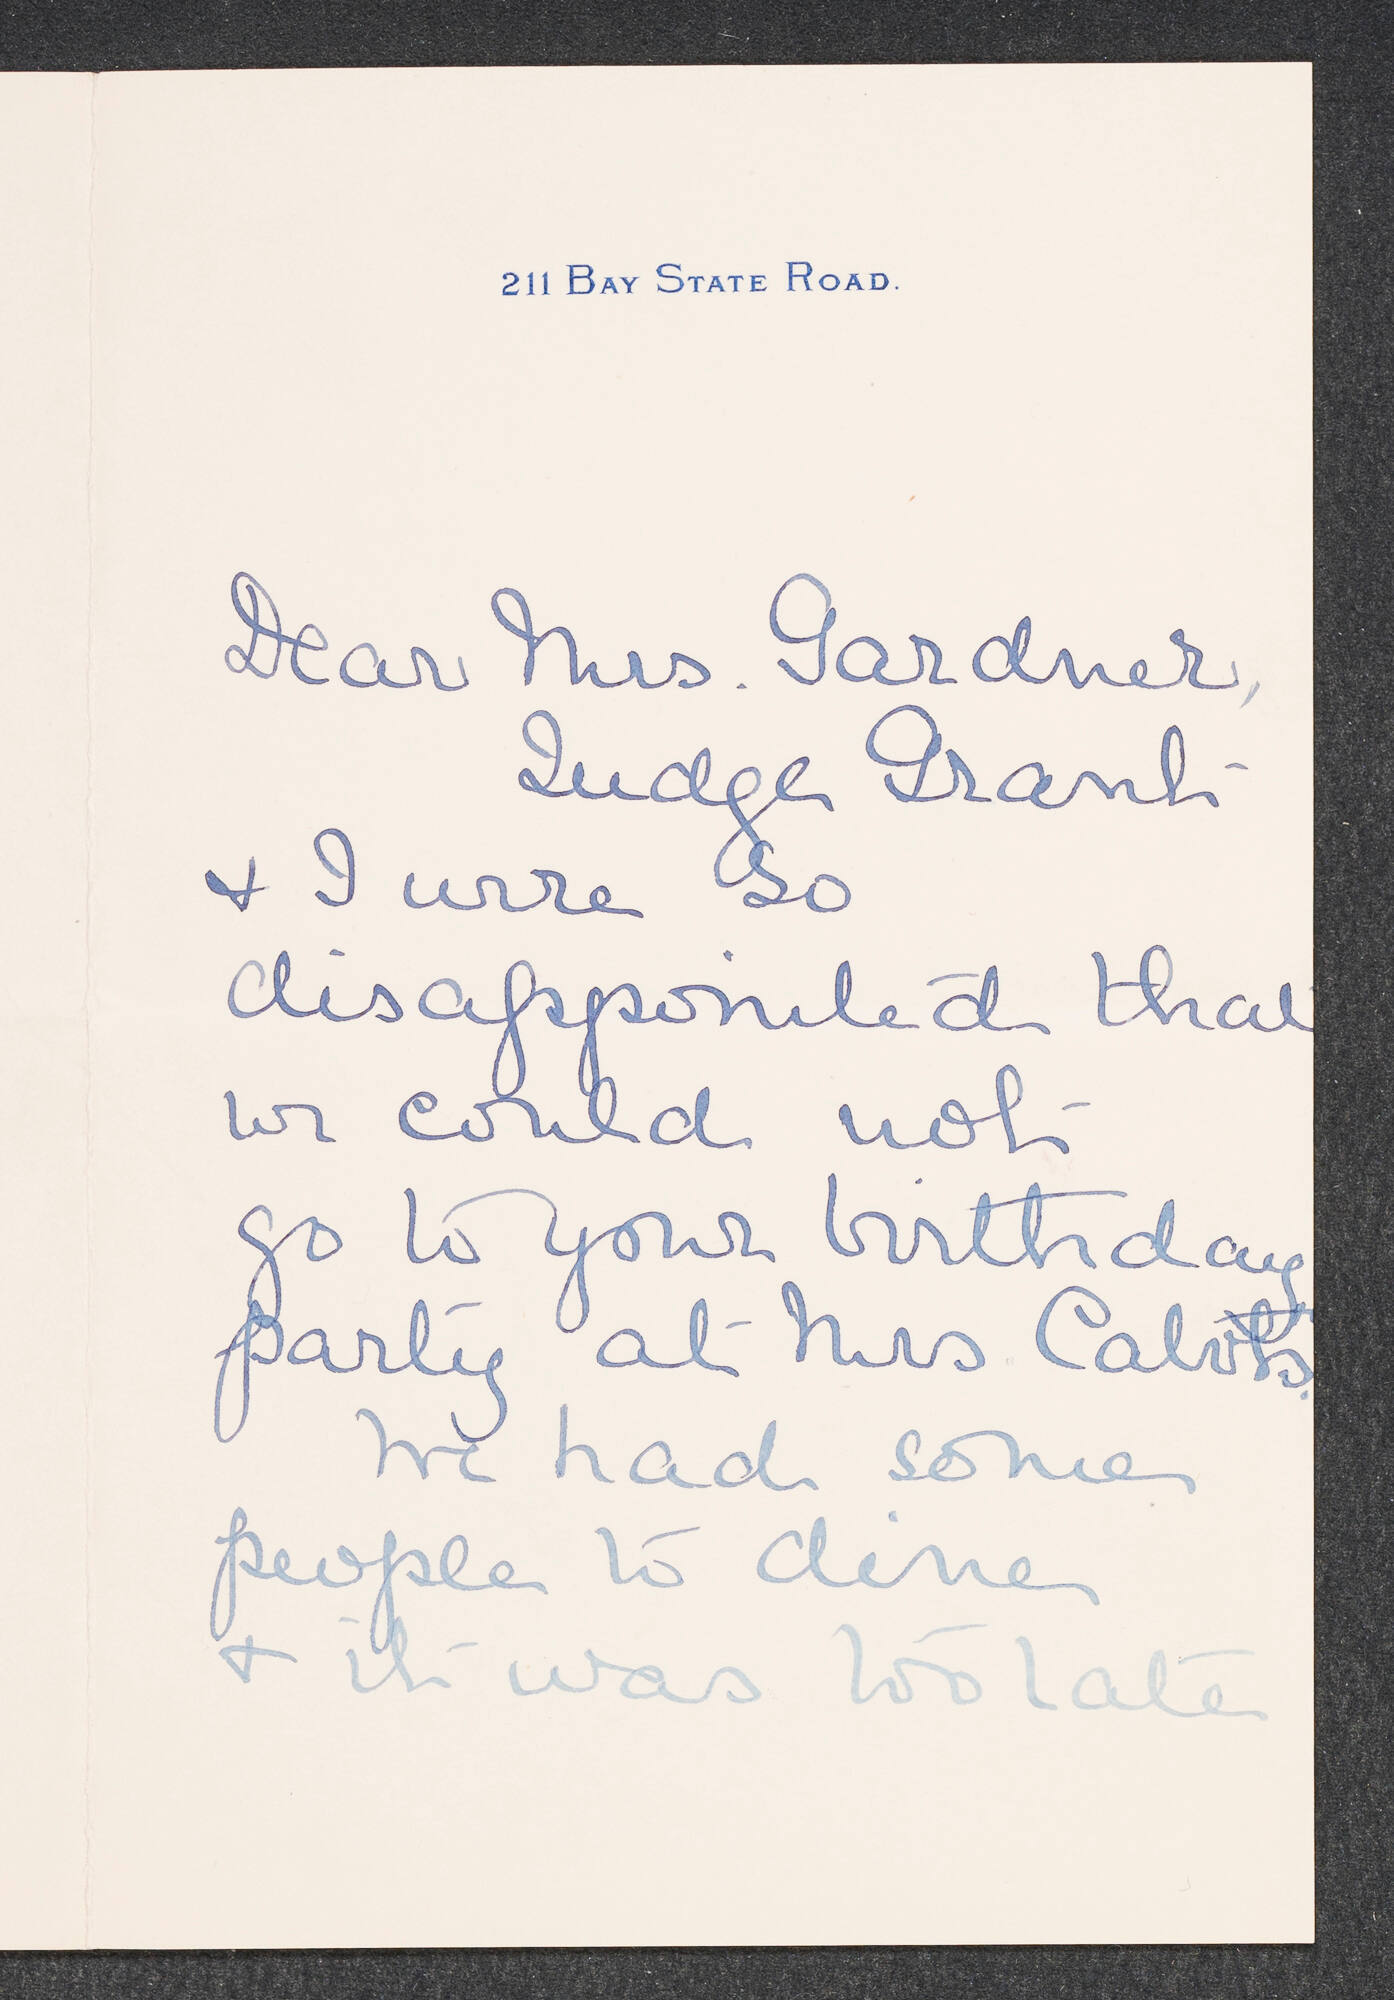 211 BAY STATE ROAD.
Dear Mrs. Gardner,
Judge Grant
& I were so
disappointed that
we could not
go to your birthday
party at Mrs Cabots.
We had some
people to dine
& it was too late